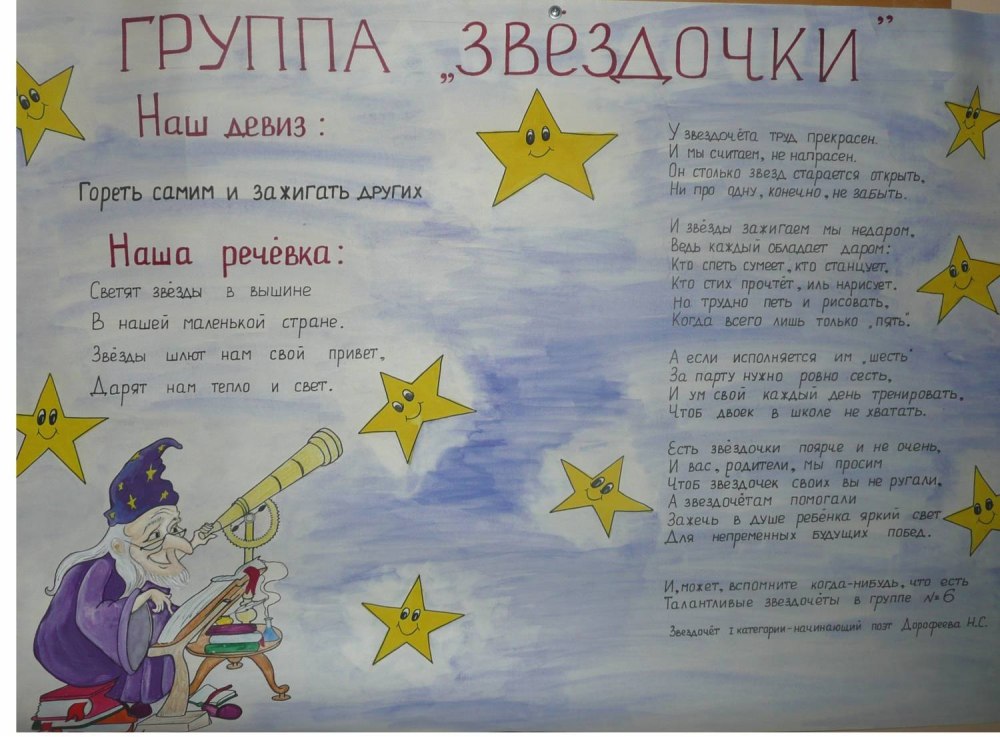 ГРУППА „ЗВЁЗДОЧКИ”
Наш девиз:
Гореть самим и зажигать других
Наша речёвка:
Светят звёзды в вышине
В нашей маленькой стране.
Звёзды шлют нам свой привет,
Дарят нам тепло и свет.
У звездочёта труд прекрасен.
И мы считаем, не напрасен.
Он столько звезд старается открыть,
Ни про одну, конечно, не забыть.
И звёзды зажигаем мы недаром,
Ведь каждый обладает даром:
Кто спеть сумеет, кто станцует,
Кто стих прочтёт, иль нарисует.
Но трудно петь и рисовать,
Когда всего лишь только „пять".
А если исполняется им „шесть"
За парту нужно ровно сесть,
И ум свой каждый день тренировать,
Чтоб двоек в школе не хватать.
Есть звёздочки поярче и не очень,
И вас, родители, мы просим
Чтоб звёздочек своих вы не ругали,
А звездочётам помогали
Зажечь в душе ребёнка яркий свет
Для непременных будущих побед.
И, может, вспомните когда-нибудь, что есть
Талантливые звездочёты в группе №6
Звездочёт I категории-начинающий поэт Дорофеева Н.С.